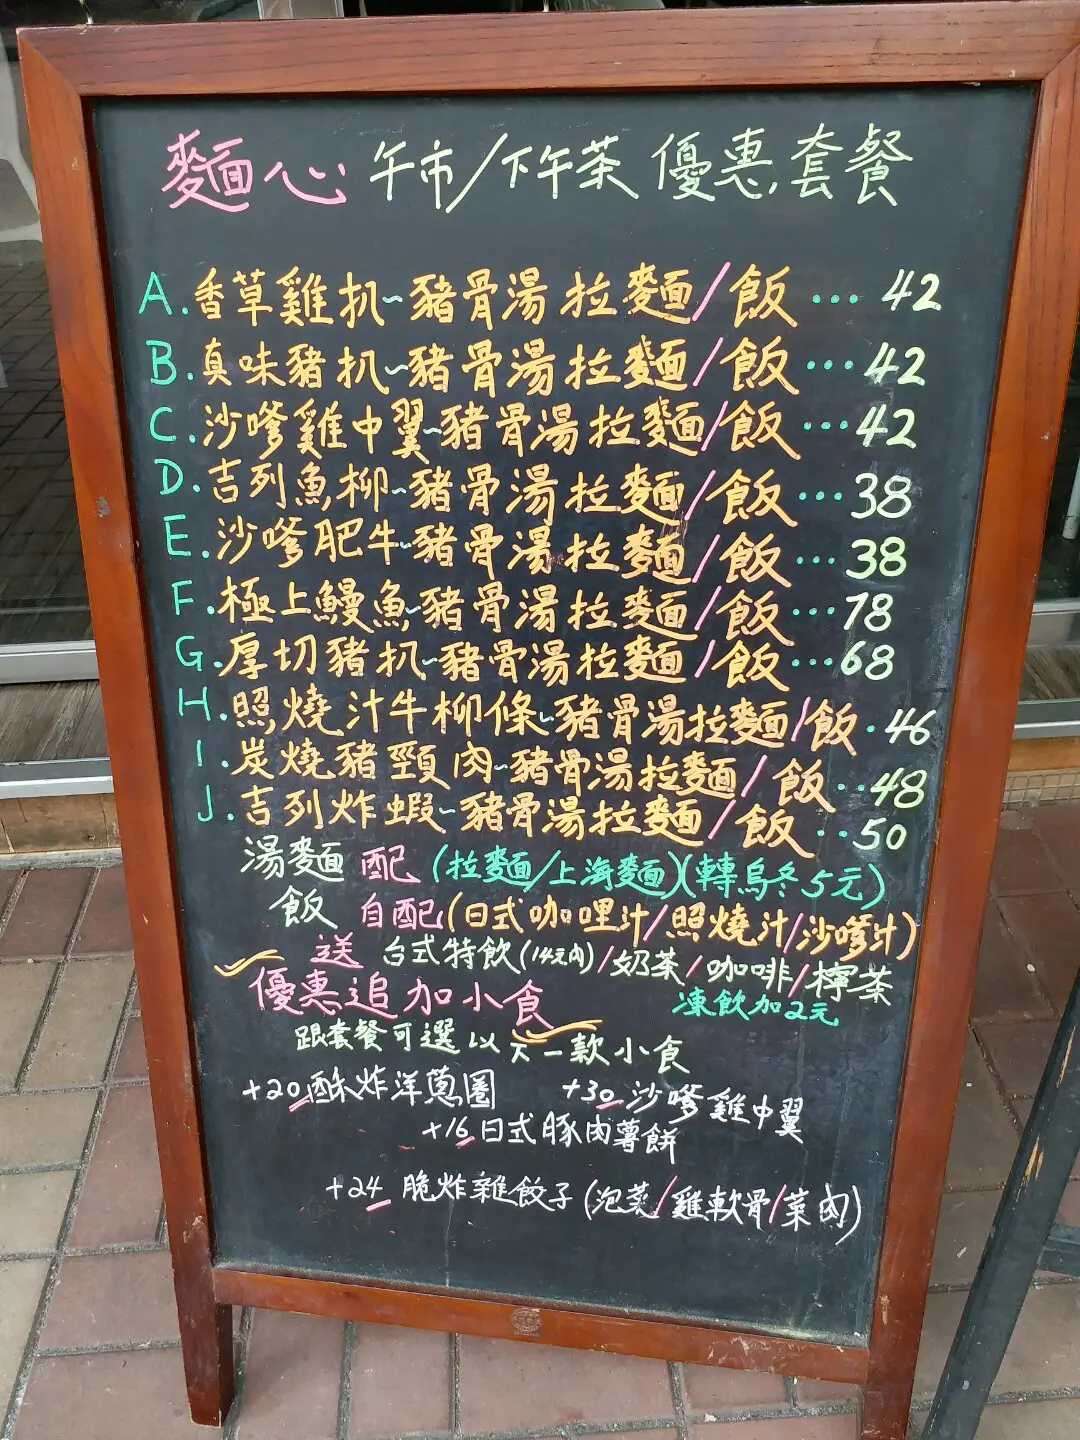 麵心 午市/下午茶 優惠套餐
A.香草雞扒~豬骨湯拉麵/飯...42
B.真味豬扒~豬骨湯拉麵/飯...42
C.沙嗲雞中翼~豬骨湯拉麵/飯...42
D.吉列魚柳~豬骨湯拉麵/飯...38
E.沙嗲肥牛~豬骨湯拉麵/飯...38
F.極上鰻魚~豬骨湯拉麵/飯...78
G.厚切豬扒~豬骨湯拉麵/飯...68
H.照燒汁牛柳條~豬骨湯拉麵/飯.46
I.炭燒豬頸肉~豬骨湯拉麵/飯..48
J.吉列炸蝦~豬骨湯拉麵/飯..50
湯麵 配 (拉麵/上海麵)(轉烏冬5元)
飯 自配(日式咖哩汁/照燒汁/沙嗲汁)
送 台式特飲(14元內)/奶茶/咖啡/檸茶
優惠追加小食 凍飲加2元
跟套餐可選以下一款小食
+20酥炸洋蔥圈 +30沙嗲雞中翼
+16日式豚肉薯餅
+24 脆炸雜餃子(泡菜/雞軟骨/菜肉)